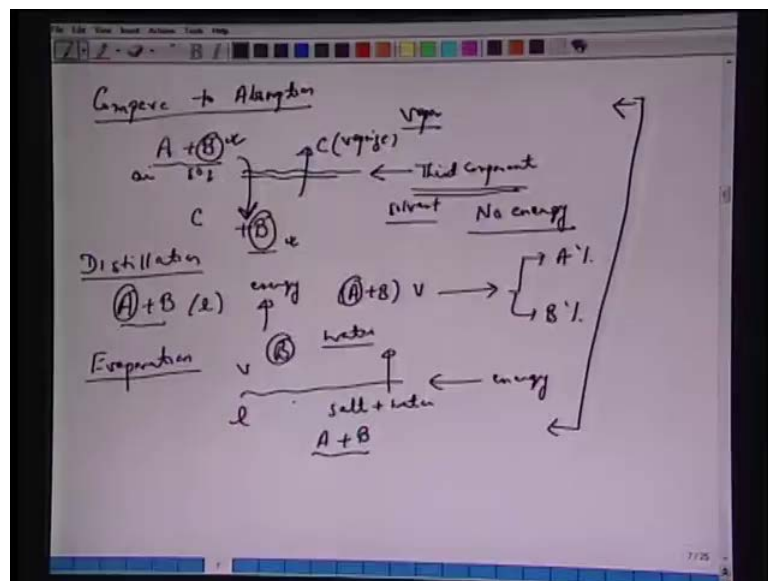 File Edit View Insert Actions Tools Help
Compare to Absorption
Vapor
A + B
C (vaporize)
air SO2
← Third Component
C
+ B
solvent
No energy
Distillation
A + B (l)
energy
(A + B) V → A %
B %
Evaporation
V B water
← energy
l
salt + water
A + B
7/25